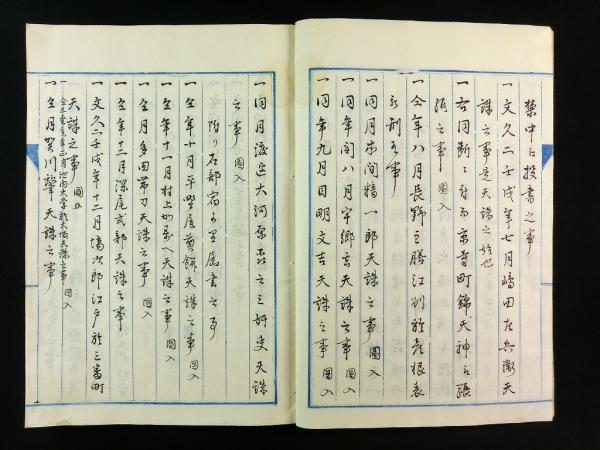 禁中ニ投書之事
一文久二壬戌年七月嶋田左兵衛天
誅之事是天誅之始也
一右同断ニ付而京寺町錦天神ニ張
紙之事 図入
一仝年八月長野主膳江州於彦根表
死刑之事
一同月本間精一郎天誅之事 図入
一同年閏八月宇郷玄天誅之事 図入
一同年九月目明文吉天誅之事 図入
一同月渡辺大河原森上之三奸吏天誅
之事 図入
附り石部宿ゟ里属書之事
一仝年十月平野屋煎餅天誅之事 図入
一仝年十一月村上加寿へ天誅之事 図入
一仝月多田帯刀天誅之事 図入
一仝年十二月深尾式部天誅之事
一文久二壬戌年十二月塙次郎江戸於三番町
天誅之事 図入
一仝三癸亥年正月池内大学於大坂天誅之事 図入
一仝月賀川肇天誅之事